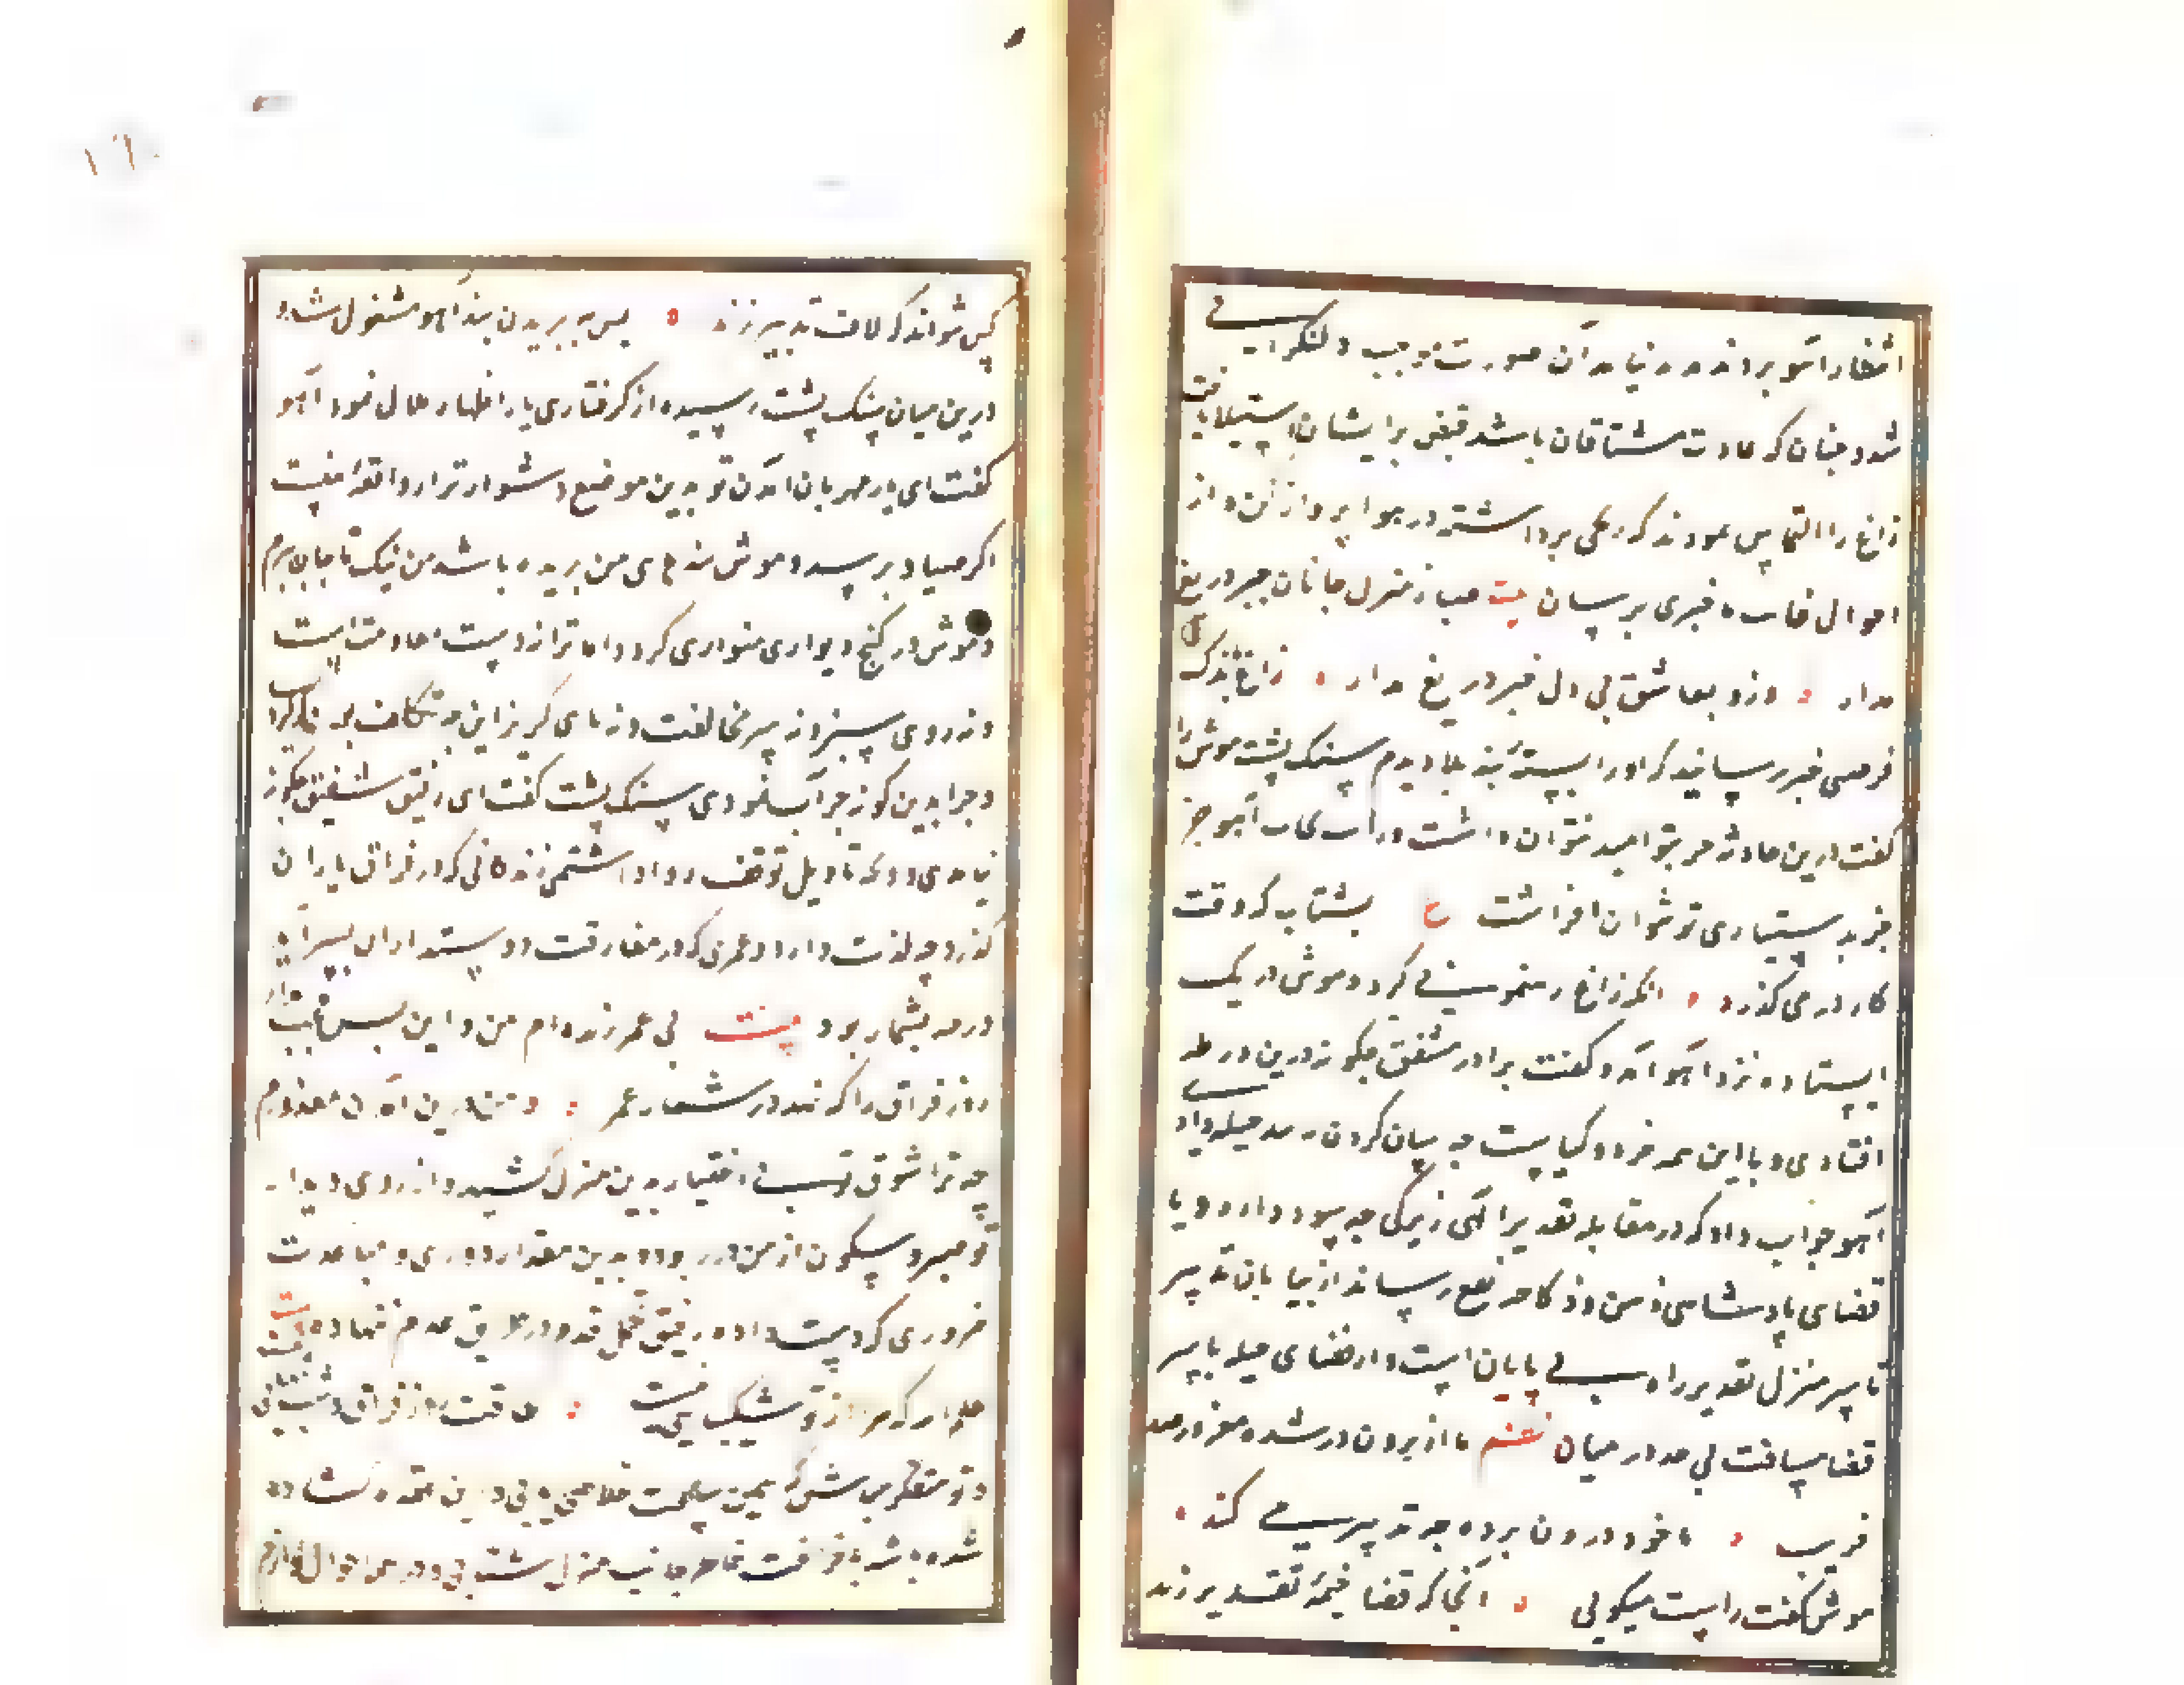 انتظار آهو بردند و نیامد آن صورت موجب دلنگرانی
شد و چنان که عادت مشتاقان باشد قبض بر ایشان استیلا یافت
زاغ را التماس نمودند که رنجی برداشته در هوا پرواز کن و از
احوال غایب ما خبری برسان بیت صبا ز منزل جانان خبر دریغ
مدار وزو بعاشق بی دل خبر دریغ مدار زاغ باندک
فرصتی خبر رسانید که او را بسته بند بلا دیدم سنگ پشت موش را
گفت درین حادثه جز بتو امید نتوان داشت و رایت نجات آهو جز
جز بدستیاری تو نتوان افراشت ع بشتاب که وقت
کار در می گذرد انگه زاغ رهنمونی کرد و موش در تک
ایستاده نزد آهو آمد و گفت برادر مشفق چگونه درین ورطه
افتادی و با این همه خرد و کیاست چه سان گردن به بند حیله دادی
آهو جواب داد که در مقابله تقدیر الهی زیرکی چه سود دارد و با
قضای پادشاهی ذهن و ذکا چه نفع رساند از بیابان تدبیر
تا سر منزل تقدیر راه بی پایان است و از فضای حیله تا سر
قضا مسافت بی حد در میان نظم ما از برون در شده مغرور صد
فریب تا خود درون پرده چه تدبیر می کنند
موش گفت راست میگویی آنجا که قضا خیمه تقدیر زند
کس نتواند که لاف تدبیر زند پس به بریدن بند آهو مشغول شد و
درین میان سنگ پشت رسیده از گرفتاری یار اظهار ملال نمود آهو
گفت ای یار مهربان آمدن تو بدین موضع دشوارتر از واقعه منست
اگر صیاد برسد و موش بندهای من بریده باشد من بتک پا جان برم
و موش در کنج دیواری متواری گردد اما ترا نه دست مقاومت است
و نه روی ستیز و نه سر مخالفت و نه پای گریز این چه تکلف بود که کردی
و چرا بدین گونه جرأت نمودی سنگ پشت گفت ای رفیق شفیق چگونه
نیامدی و بچه تاویل توقف روا داشتمی زندگانی که در فراق یاران
گذرد چه لذت دارد و عمری که در مفارقت دوستداران بسر آید
در چه شمار بود بیت بی عمر زنده ام من و این بس عجب مدار
روز فراق را که نهد در شمار عمر و من درین آمدن معذورم
چه ترا شوق تو بی اختیار بدین منزل کشید و آرزوی دیدار
تو صبر و سکون از من در ربود و بدین مقدار دوری و مباعدت
ضروری که دست داده رفیق تحمل قدم در طریق عدم نهاده بیت